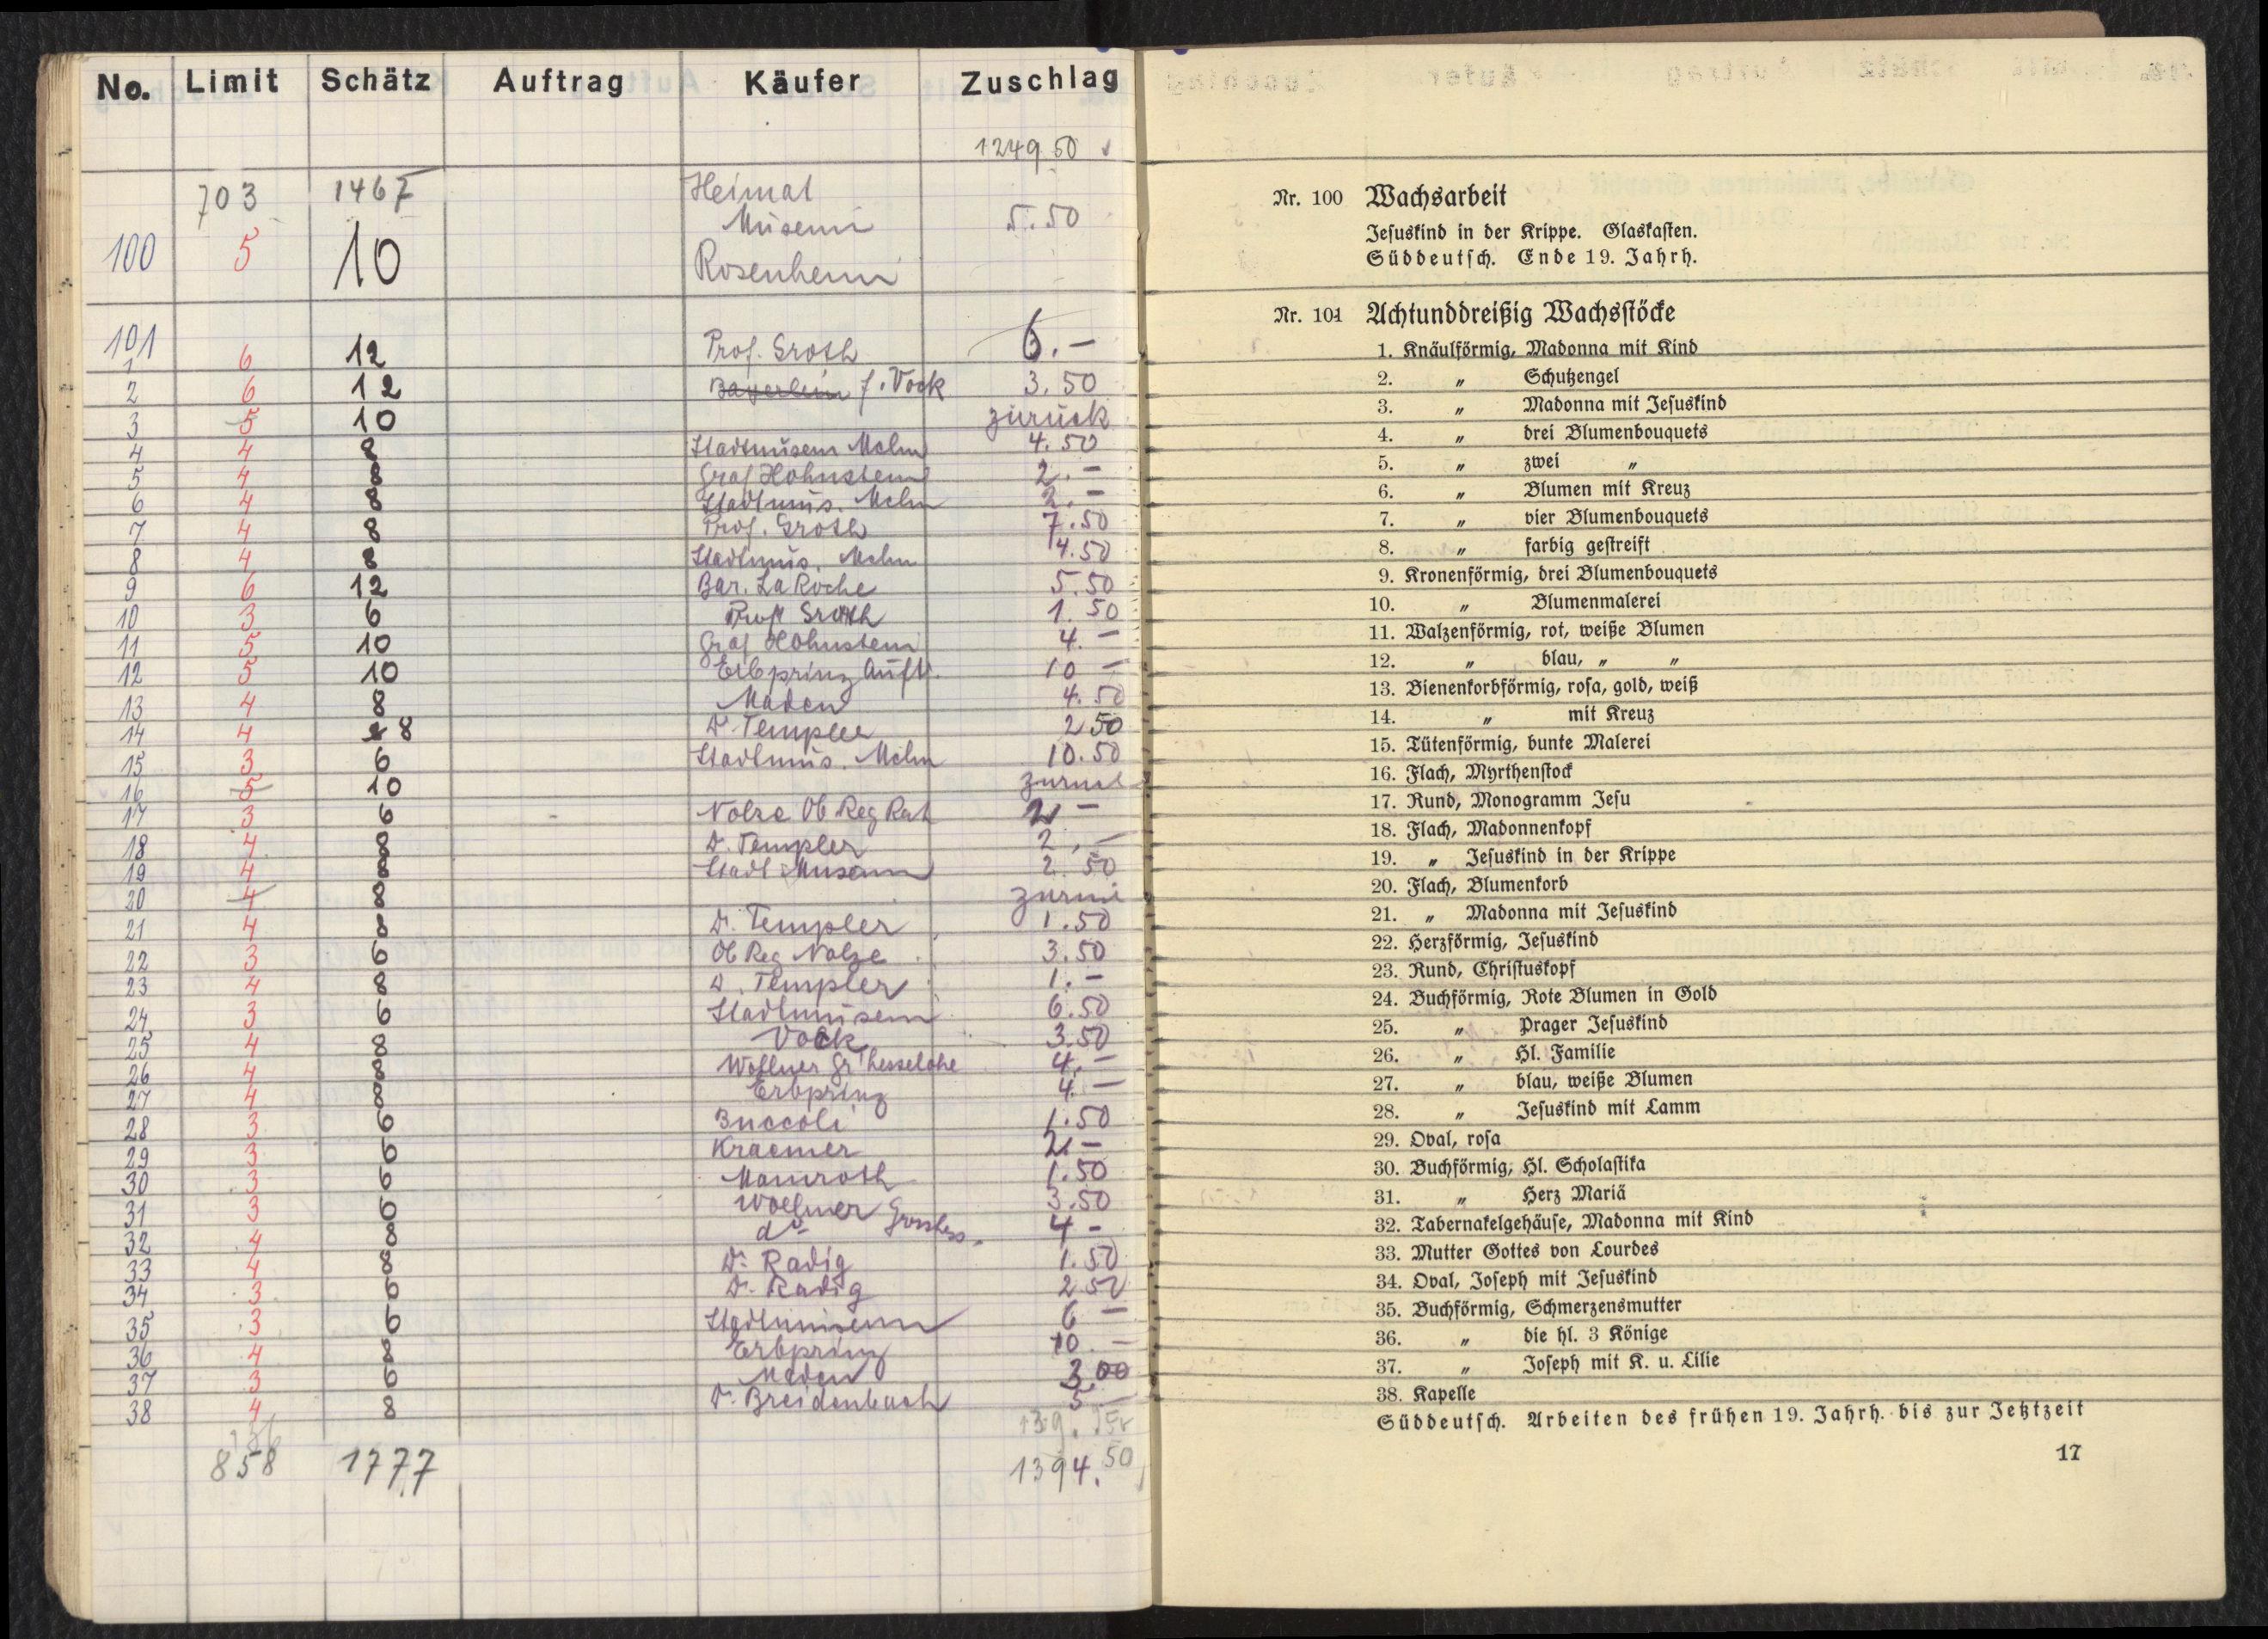 No. Limit Schätz Auftrag Käufer Zuschlag
1249 50
703 1467 Heimat
Museum 5.50
100 5 10 Rosenheim
101
1 6 12 Prof. Groth 6.-
2 6 12 Bayerlein f. Vock 3.50
3 5 10 zurück
4 4 8 Stadtmuseum Mchn 4.50
5 4 8 Graf Hohnstein 2.-
6 4 8 Stadtmus. Mchn 2.-
7 4 8 Prof. Groth 7.50
8 4 8 Stadtmus. Mchn 4.50
9 6 12 Bar. La Roche 5.50
10 3 6 Prof Groth 1.50
11 5 10 Graf Hohnstein 4.-
12 5 10 Erbprinz Auftr. 10 -
13 4 8 Maden 4.50
14 4 8 Dr. Templer 2 50
15 3 6 Stadtmus. Mchn 10.50
16 5 10 zurück
17 3 6 Nolze Ob Reg Rat 2 -
18 4 8 Dr. Templer 2.-
19 4 8 Stadt Museum 2.50
20 4 8 zurück
21 4 8 Dr. Templer 1.50
22 3 6 Ob Reg Nolze 3.50
23 4 8 Dr. Templer 1.-
24 3 6 Stadtmuseum 6.50
25 4 8 Vock 3.50
26 4 8 Wollner Gr'hesselohe 4.-
27 4 8 Erbprinz 4.-
28 3 6 Buccoli 1.50
29 3 6 Kraemer 2.-
30 3 6 Mamroth 1.50
31 3 6 Wollner Grosshess. 3.50
32 4 8 do 4 -
33 4 8 Dr. Radig 1.50
34 3 6 Dr. Radig 2.50
35 3 6 Stadtmuseum 6 -
36 4 8 Erbprinz 10.-
37 3 6 Maden 3.00
38 4 8 Dr. Breidenbach 5 -
139.
858 1777 1394.50
Nr. 100 Wachsarbeit
Jesuskind in der Krippe. Glaskasten.
Süddeutsch. Ende 19. Jahrh.
Nr. 101 Achtunddreißig Wachsstöcke
1. Knäulförmig, Madonna mit Kind
2. " Schutzengel
3. " Madonna mit Jesuskind
4. " drei Blumenbouquets
5. " zwei "
6. " Blumen mit Kreuz
7. " vier Blumenbouquets
8. " farbig gestreift
9. Kronenförmig, drei Blumenbouquets
10. " Blumenmalerei
11. Walzenförmig, rot, weiße Blumen
12. " blau, " "
13. Bienenkorbförmig, rosa, gold, weiß
14. " mit Kreuz
15. Tütenförmig, bunte Malerei
16. Flach, Myrthenstock
17. Rund, Monogramm Jesu
18. Flach, Madonnenkopf
19. " Jesuskind in der Krippe
20. Flach, Blumenkorb
21. " Madonna mit Jesuskind
22. Herzförmig, Jesuskind
23. Rund, Christuskopf
24. Buchförmig, Rote Blumen in Gold
25. " Prager Jesuskind
26. " Hl. Familie
27. " blau, weiße Blumen
28. " Jesuskind mit Lamm
29. Oval, rosa
30. Buchförmig, Hl. Scholastika
31. " Herz Mariä
32. Tabernakelgehäuse, Madonna mit Kind
33. Mutter Gottes von Lourdes
34. Oval, Joseph mit Jesuskind
35. Buchförmig, Schmerzensmutter
36. " die hl. 3 Könige
37. " Joseph mit K. u. Lilie
38. Kapelle
Süddeutsch. Arbeiten des frühen 19. Jahrh. bis zur Jetztzeit
17